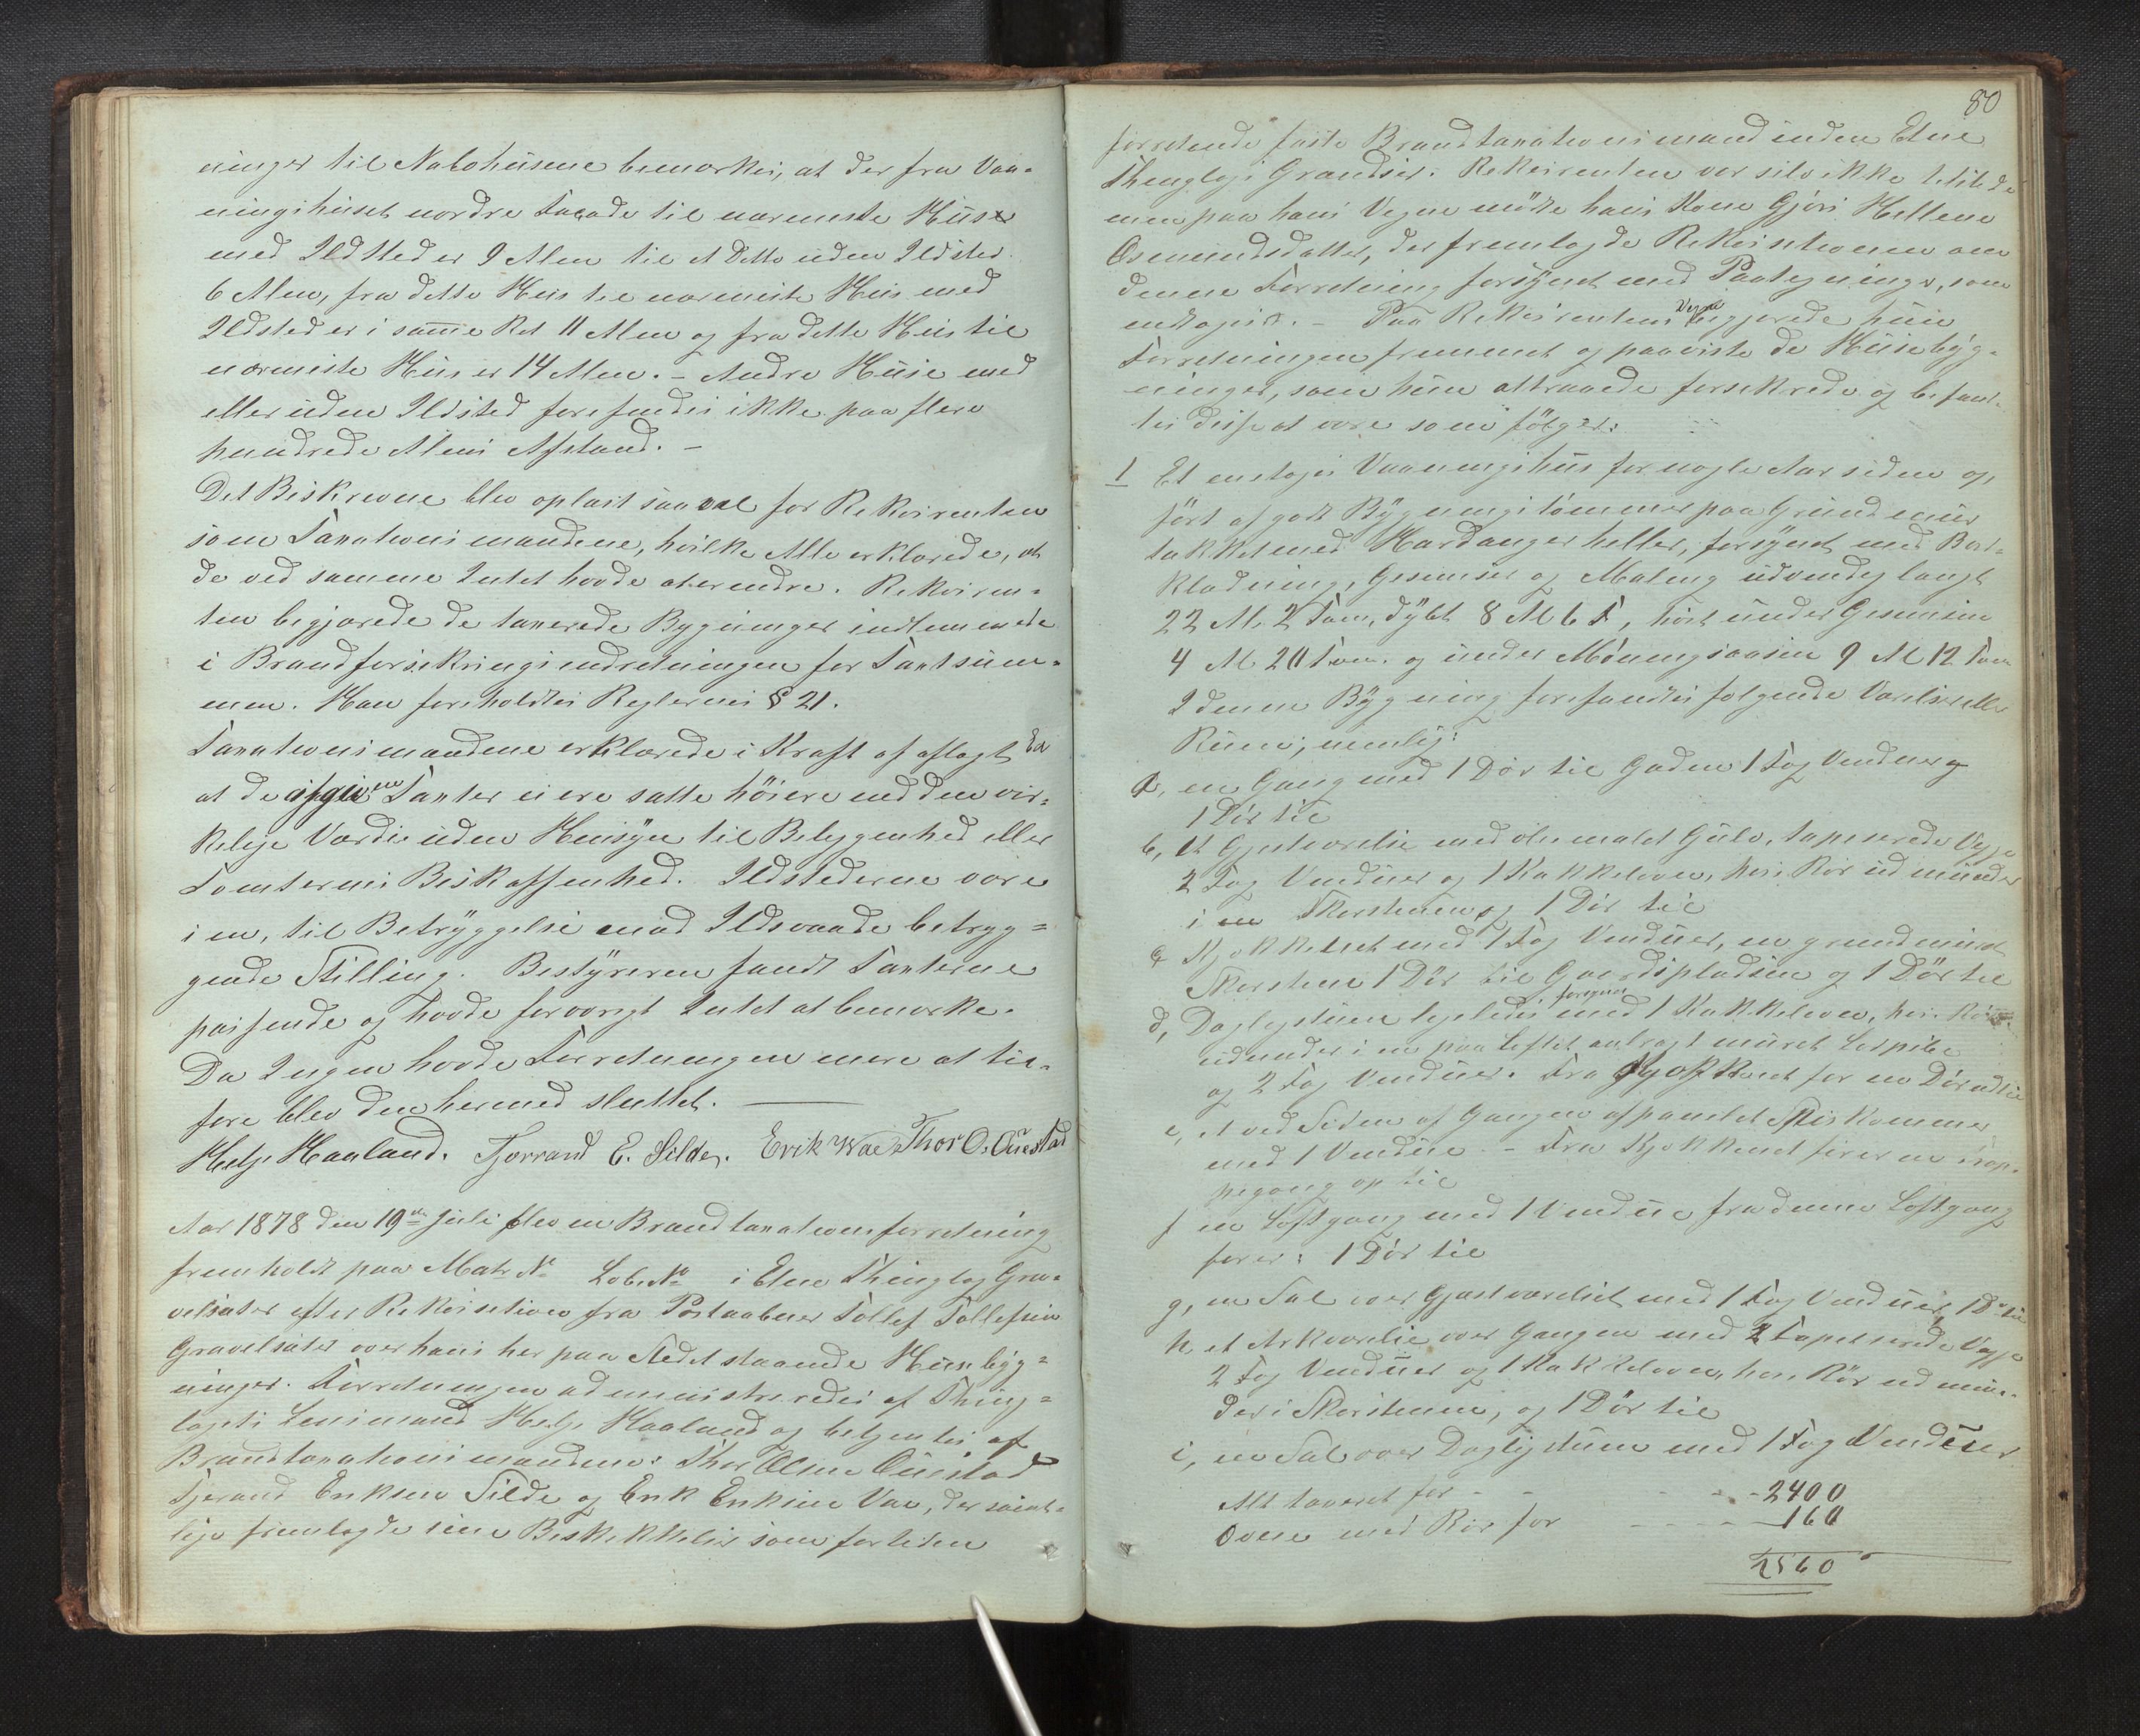 ninger til Nabohusene bemærkes, at der fra Vaa-
ningshuset nordre Facade til nærmeste Huse
med Ildsted er 9 Alen til et Ditto uden Ildsted
6 Alen, fra dette Huus til nærmeste Huus med
Ildsted er i samme Ret 11 Alen og fra dette Huus til
nærmeste Huus er 14 Alen. – Andre Huse med
eller uden Ildsted forefindes ikke paa flere
hundrede Alens Afstand. –
Det Beskrevne blev oplæst saavel for Rekvirenten
som Taxationsmændene, hvilke Alle erklærede, at
de ved samme Intet havde at erindre. Rekviren-
ten begjærede de taxerede Bygninger indlemmede
i Brandforsikringsindretningen for Taxtsum-
men. Han foreholdtes Reglernes § 21.
Taxationsmændene erklærede i Kraft af aflagt Ed
at de afgivne Taxter ei ere satte høiere end den vir-
kelige Værdie uden Hensyn til Beliggenhed eller
Tomternes Beskaffenhed. Ildstederne vare
i en, til Betryggelse mod Ildsvaade betryg=
gende Stilling. Bestyreren fandt Taxterne
passende og havde forøvrigt Intet at bemærke.
Da Ingen havde Forretningen mere at til-
føre blev den hermed sluttet. ——
Helje Haaland. Tjerrand E. Silde. Erik Wae Thor O. Ouestad
Aar 1878 den 19de Juli blev en Brandtaxationsforretning
fremholdt paa Matr No Løbe No i Etne Thinglag Gra-
velsæter efter Rekvisition fra Postaabner Tollef Tollefsen
Gravelsæter over hans her paa Stedet staaende Huusbyg=
ninger. Forretningen administreredes af Thing=
lagets Lensmand Helje Haaland og betjentes af
Brandtaxationsmændene: Thor Olsen Ouestad
Tjerand Eriksen Silde og Erik Eriksen Vae, der samt-
lige fremlagde sine Beskikkelser som for tiden
80
forretende faste Brandtaxationsmænd inden Etne
Thinglags Grændser. Rekvirenten var selv ikke tilstede
men paa hans Vegne mødte hans Kone Gjøri Hellene
Osmundsdatter, der fremlagde Rekvisitionen om
denne Forretning forsynet med Paategninger, som
indtages. – Paa Rekvirentens Vegne begjærede hun
Forretningen fremmet og paaviste de Huusbyg-
ninger, som hun attraaede forsikrede og befand-
tes disse at være som følger:
1 Et enetages Vaaningshus for nogle Aar siden op-
ført af godt Bygningstømmer paa Grundmuur
takket med Hardangerheller, forsynet med Bord-
klædning, Gesimser og Maling udvendig langt
22 Al. 2 Tom, dybt 8 Al 6 T, høit under Gesimsen
4 Al 20 Tom. og under Mønningsaasen 9 Al 12 Tom
I denne Bygning forefandtes følgende Værelser eller
Rum, nemlig:
a, en Gang med 1 Dør til Gaden 1 Fag Vinduer og
1 Dør til
b, et Gjesteværelse med oliemalet Gulv, tapetserede Vægge
2 Fag Vinduer og 1 Kakkelovn, hvis Rør udmunder
i en Skorstenen og 1 Dør til
c Kjøkkenet med 1 Fag Vinduer, en grundmuret
Skorsten 1 Dør til Gaardspladsen og 1 Dør til
d, Dagligstuen ligeledes forsynet med 1 Kakkelovn, hvis Rør
udmunder i en paa Loftet anbragt muret Ildpibe
og 2 Fag Vinduer. Fra Kjøkkenet før en Dør ud til
e, et ved Siden af Gangen afpanelet Spiskammer
med 1 Vindue. – Fra Kjøkkenet fører en Trap-
pegang op til
f en Loftgang med 1 Vindue fra denne Loftgang
fører: 1 Dør til
g, en Sal over Gjestværelset med 1 Fag Vinduer, 1 Dør til
h et Arkværelse over Gangen med 2 Tapetserede Vægge
2 Fag Vinduer og 1 Kakkelovn, hvis Rør udmun-
der i Skorstenen, og 1 Dør til
i, en Sal over Dagligstuen med 1 Fag Vinduer
Alt taxeret for - - - - - 2400
Ovne med Rør for - - - - 160
2560